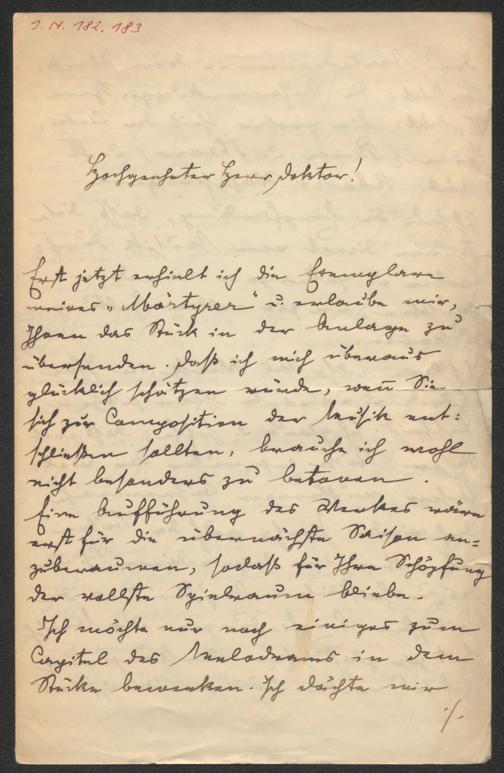 I. N. 182.183
Hochgeehrter Herr Doktor!
Erst jetzt erhielt ich die Exemplare
meines „Märtyrer" u. erlaube mir,
Ihnen das Stück in der Anlage zu
übersenden. Daß ich mich überaus
glücklich schätzen würde, wenn Sie
sich zur Composition der Musik ent:
schließen sollten, brauche ich wohl
nicht besonders zu betonen.
Eine Aufführung des Werkes wäre
erst für die übernächste Saison an=
zuberaumen, sodaß für Ihre Schöpfung
der vollste Spielraum bliebe.
Ich möchte nur noch einiges zum
Capitel des Melodrams in dem
Stücke bemerken. Ich dächte mir
./.